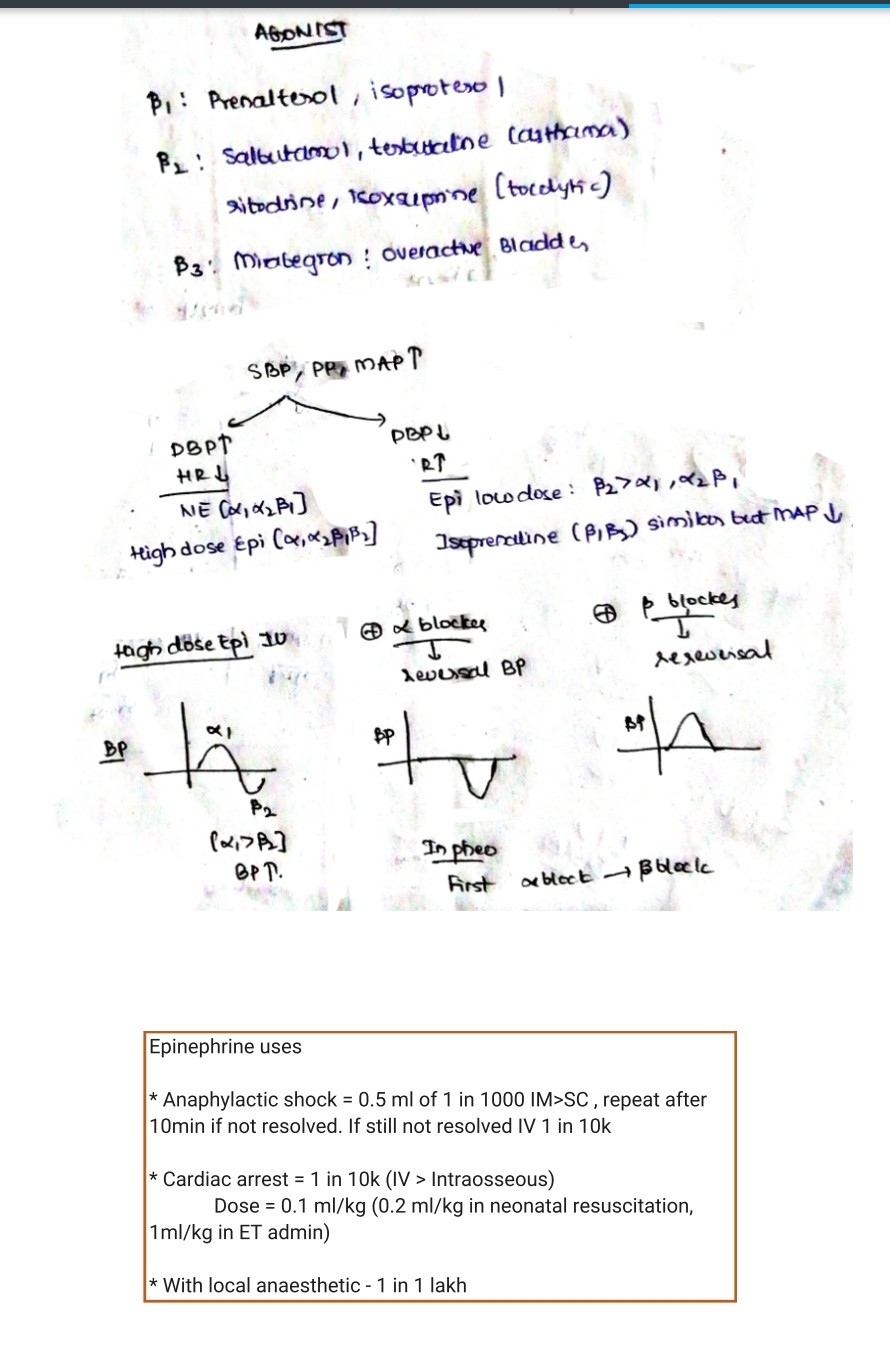 AGONIST
β₁ : Prenalterol, isoproterol
β₂ : Salbutamol, terbutaline (asthama)
ritodrine, isoxsuprine (tocolytic)
β₃ : Mirabegron : overactive Bladder
SBP, PP, MAP↑
DBP↑
HR↓
NE [α₁, α₂ β₁]
High dose Epi [α₁, α₂ β₁ β₂]
DBP↓
R↑
Epi low dose : β₂ > α₁, α₂ β₁
Isoprenaline (β₁ β₂) similar but MAP ↓
High dose Epi IV
⊕ α blocker
↓
reversal BP
⊕ β blocker
↓
rereversal
BP
α₁
β₂
[α₁>β₂]
BP↑.
BP
BP
In pheo
First α block → β block
Epinephrine uses
* Anaphylactic shock = 0.5 ml of 1 in 1000 IM>SC , repeat after
10min if not resolved. If still not resolved IV 1 in 10k
* Cardiac arrest = 1 in 10k (IV > Intraosseous)
Dose = 0.1 ml/kg (0.2 ml/kg in neonatal resuscitation,
1ml/kg in ET admin)
* With local anaesthetic - 1 in 1 lakh